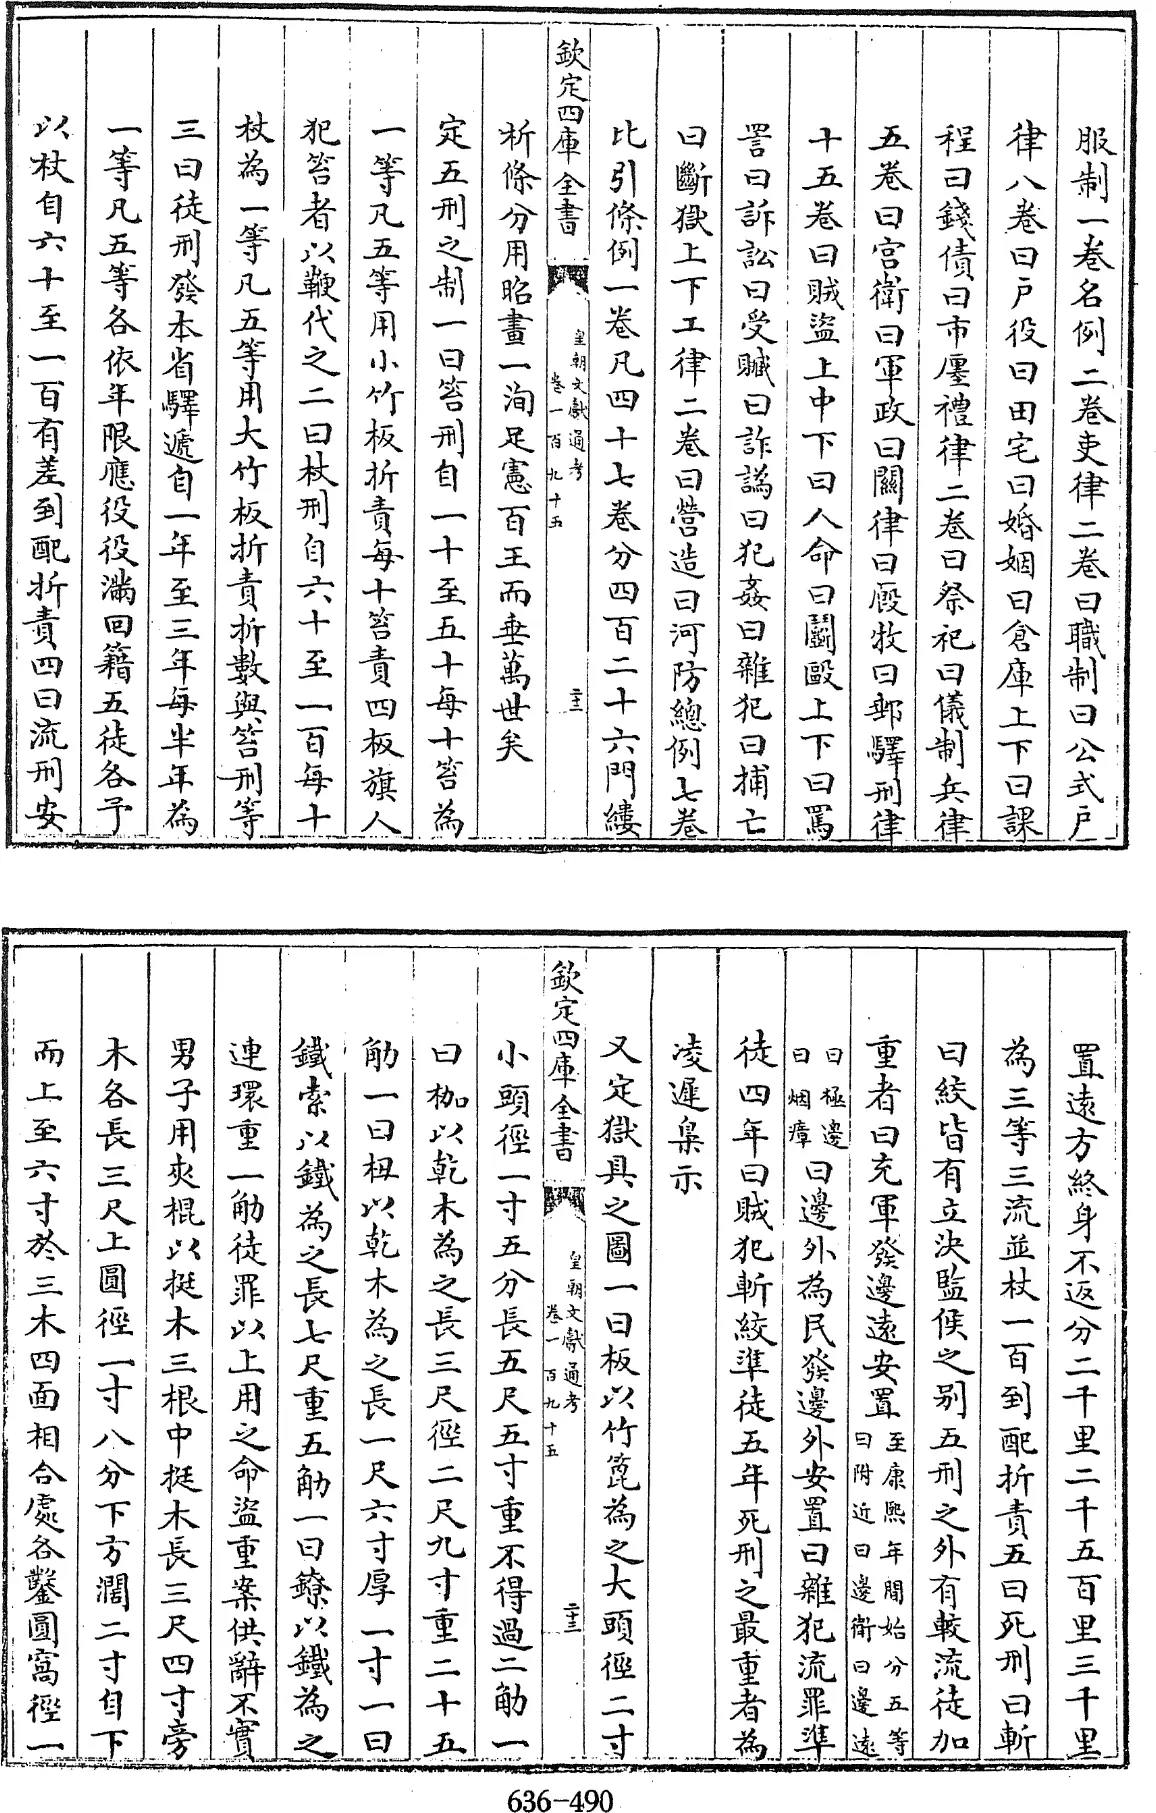 服制一卷名例二卷吏律二卷曰職制曰公式戶
律八卷曰戶役曰田宅曰婚姻曰倉庫上下曰課
程曰錢債曰市廛禮律二卷曰祭祀曰儀制兵律
五卷曰宮衛曰軍政曰關律曰廐牧曰郵驛刑律
十五卷曰賊盜上中下曰人命曰鬭毆上下曰罵
詈曰訴訟曰受贓曰詐譌曰犯姦曰雜犯曰捕亡
曰斷獄上下工律二卷曰營造曰河防總例七卷
比引條例一卷凡四十七卷分四百二十六門縷
欽定四庫全書
皇朝文獻通考
卷一百九十五
二十三
析條分用昭畫一洵足憲百王而垂萬世矣
定五刑之制一曰笞刑自一十至五十每十笞為
一等凡五等用小竹板折責每十笞責四板旗人
犯笞者以鞭代之二曰杖刑自六十至一百每十
杖為一等凡五等用大竹板折責折數與笞刑等
三曰徒刑發本省驛遞自一年至三年每半年為
一等凡五等各依年限應役役滿回籍五徒各予
以杖自六十至一百有差到配折責四曰流刑安
置遠方終身不返分二千里二千五百里三千里
為三等三流並杖一百到配折責五曰死刑曰斬
曰絞皆有立決監候之别五刑之外有較流徒加
重者曰充軍發邊遠安置至康熙年間始分五等曰附近曰邊衛曰邊遠
曰極邊曰烟瘴曰邊外為民發邊外安置曰雜犯流罪準
徒四年曰賊犯斬絞準徒五年死刑之最重者為
凌遲梟示
又定獄具之圖一曰板以竹篦為之大頭徑二寸
欽定四庫全書
皇朝文獻通考
卷一百九十五
二十三
小頭徑一寸五分長五尺五寸重不得過二觔一
曰枷以乾木為之長三尺徑二尺九寸重二十五
觔一曰杻以乾木為之長一尺六寸厚一寸一曰
鐵索以鐵為之長七尺重五觔一曰鐐以鐵為之
連環重一觔徒罪以上用之命盜重案供辭不實
男子用夾棍以挺木三根中挺木長三尺四寸旁
木各長三尺上圓徑一寸八分下方濶二寸自下
而上至六寸於三木四面相合處各鑿圓窩徑一
636-490